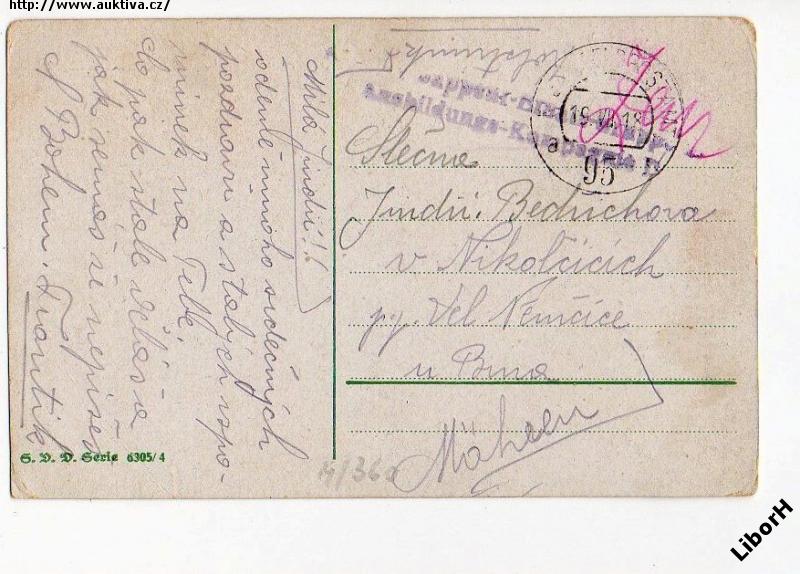 http://www.auktiva.cz/
Milá Jindři!!
mnoho srdečných
pozdravů a stálých vzpo-
mínek na Tebe.
Co pak stále děláš a
jak se máš že nepíšeš
S Bohem. Frantík
S. V. D. Serie 6305/4
Ausbildungs-Kompagnie
19.VII.18
a
95
Slečna
Jindři. Beduchova
v Nikolčicích
p. Vel Němčice
u Brna
Mähren
M/360
LiborH